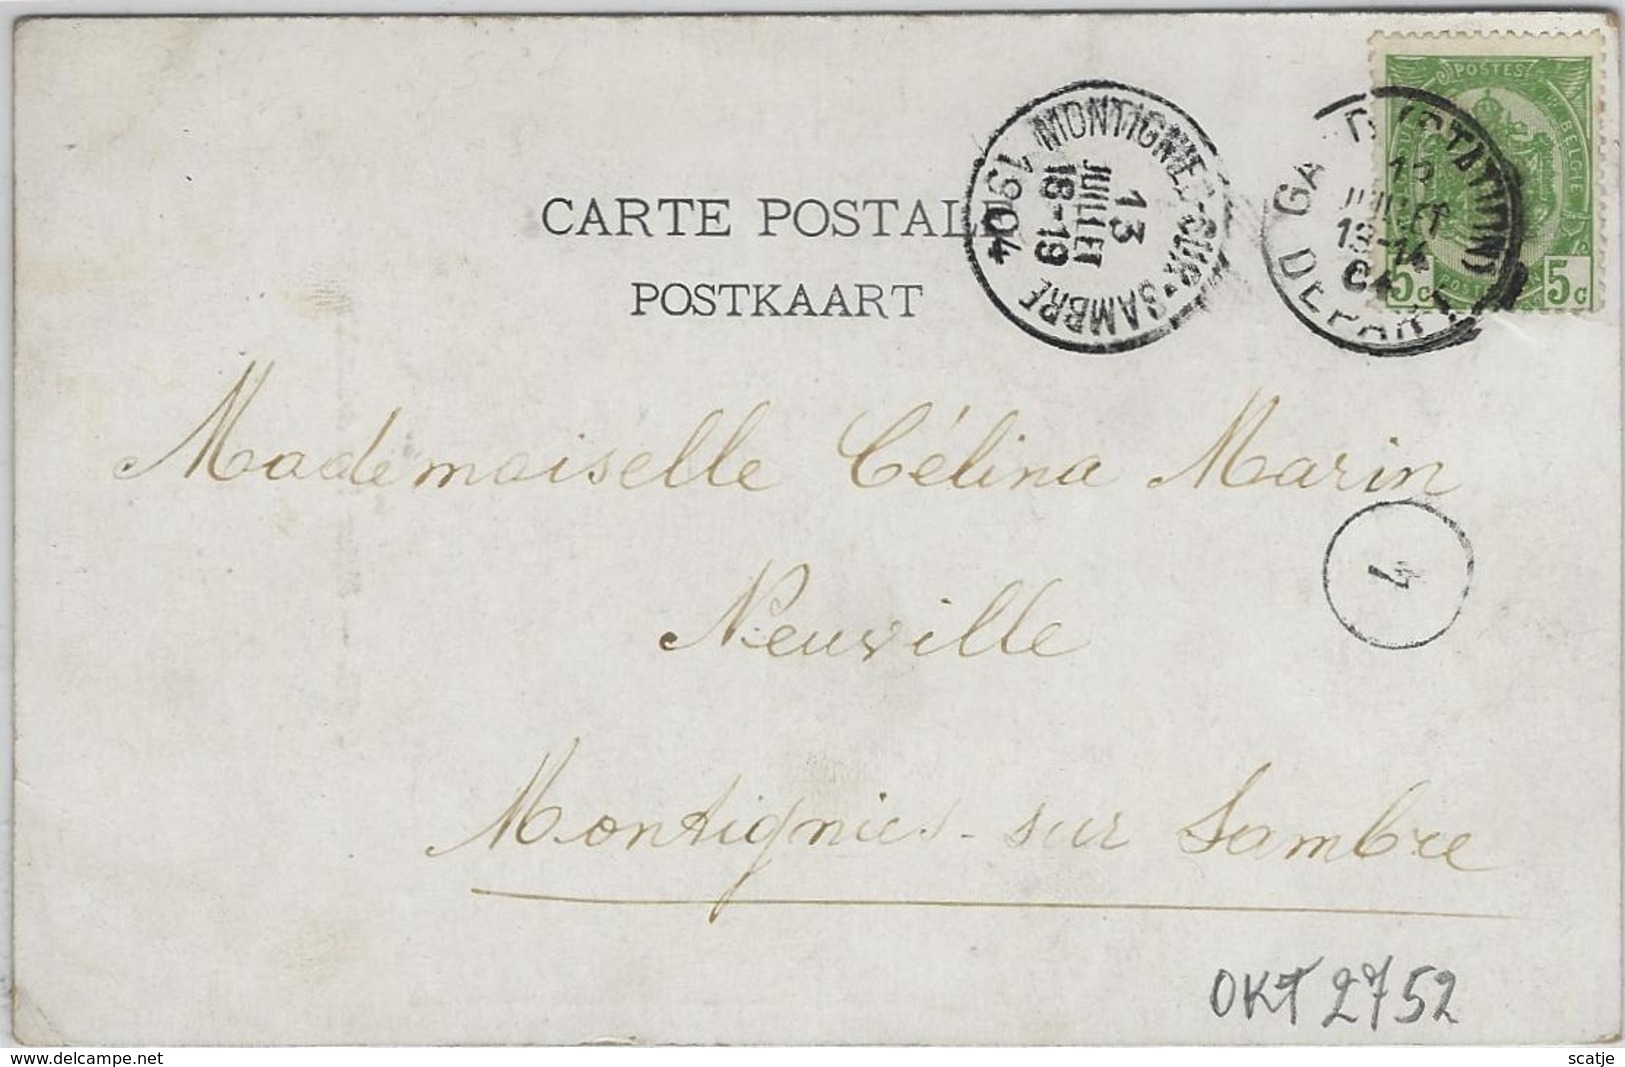 POSTES
BELGIE
5c 5c
GA (STATION) DEPART
JUILLET
04
MONTIGNIES-SUR-SAMBRE
13
JUILLET
18-19
1904
CARTE POSTALE
POSTKAART
Mademoiselle Célina Marin
Neuville
Montignies-sur Sambre
OKT 2752
www.delcampe.net
scatje